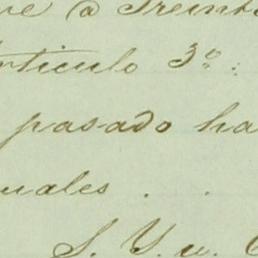 ue @ Treint
rticulo 3º:
pasado ha
uales . .
S. Y. u.